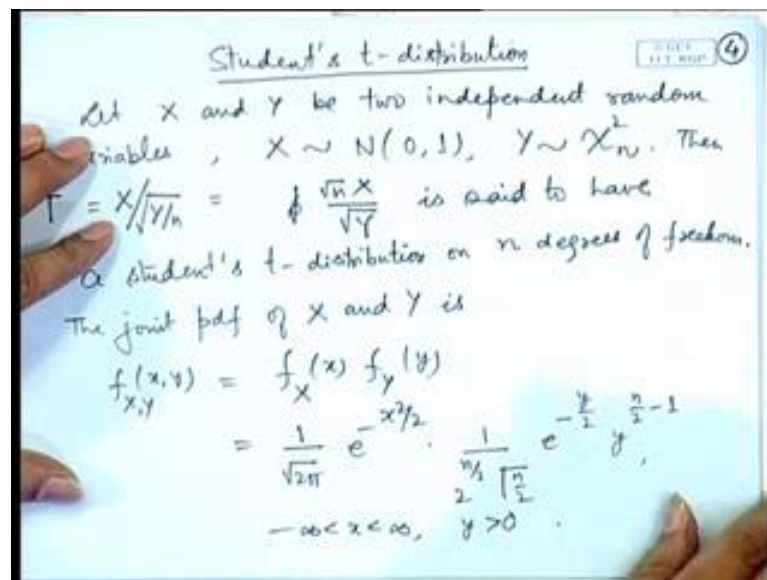 Student's t-distribution
④
Let X and Y be two independent random
riables, X ~ N(0,1), Y ~ χ²ₙ. Then
T = X/√(Y/n) = √n X / √Y is said to have
a student's t-distribution on n degrees of freedom.
The joint pdf of X and Y is
f_{X,Y}(x,y) = f_X(x) f_Y(y)
= 1/√(2π) e^{-x²/2} · 1/(2^{n/2} Γ(n/2)) e^{-y/2} y^{n/2 - 1},
-∞ < x < ∞, y > 0.